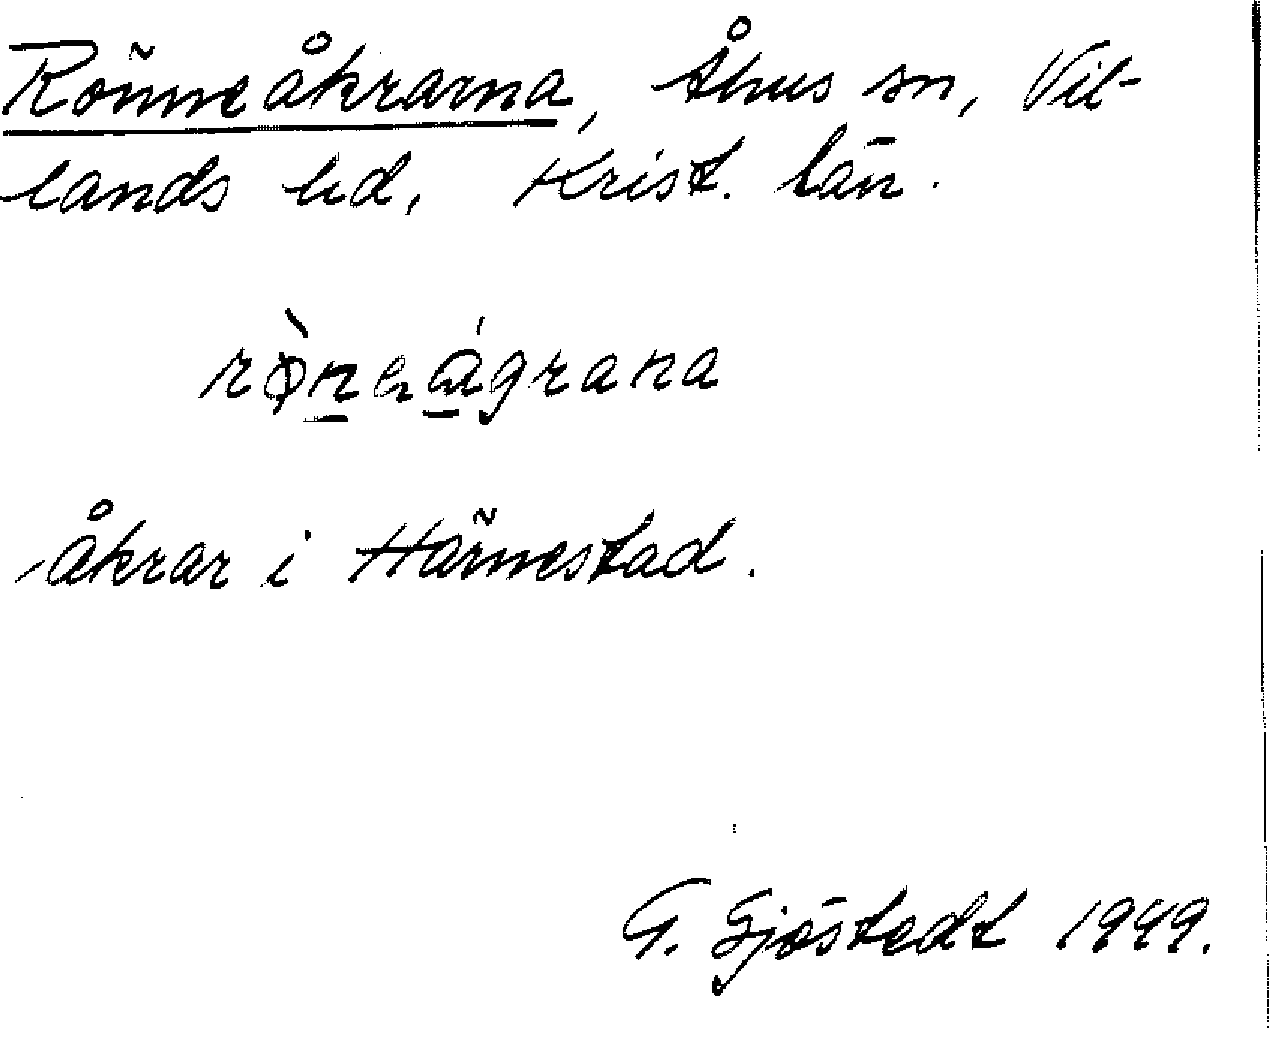 Rönneåkrarna, Åhus sn, Vil-
lands hd, Krist. län.
rø̀nəágrana
åkrar i Härnestad.
G. Sjöstedt 1949.